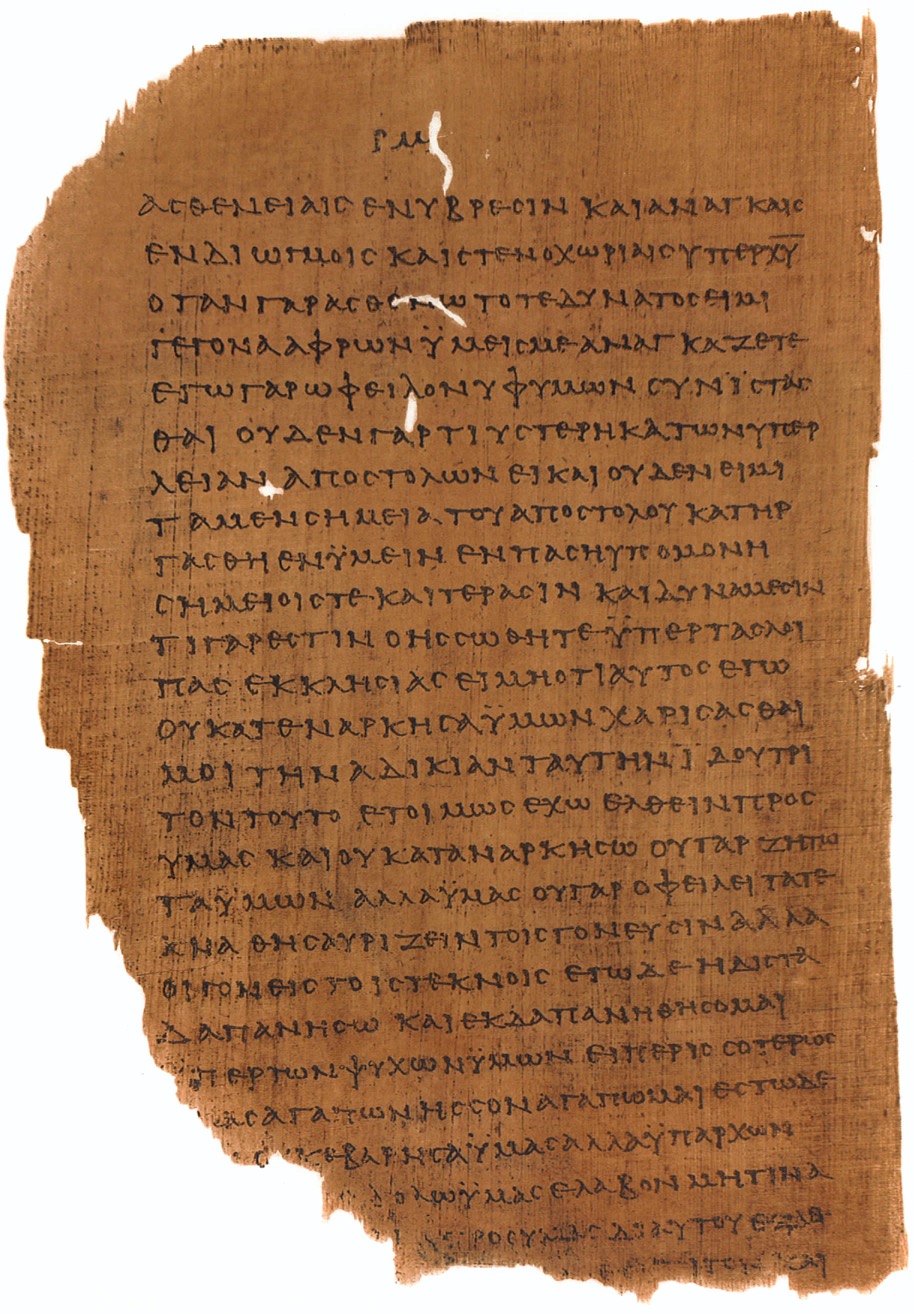 ΡΜ
ΑСΘΕΝΕΙΑΙС ΕΝΥΒΡΕСΙΝ ΚΑΙΑΝΑΓΚΑΙС
ΕΝΔΙΩΓΜΟΙС ΚΑΙСΤΕΝΟΧΩΡΙΑΙСΥΠΕΡΧ̅Υ̅
ΟΤΑΝΓΑΡΑСΘΕΝΩΤΟΤΕΔΥΝΑΤΟСΕΙΜΙ
ΓΕΓΟΝΑΑΦΡΩΝΫΜΕΙСΜΕΑΝΑΓΚΑΖΕΤΕ
ΕΓΩΓΑΡΩΦΕΙΛΟΝΥΦΥΜΩΝ СΥΝΪСΤΑС
ΘΑΙ ΟΥΔΕΝΓΑΡΤΙΥСΤΕΡΗΚΑΤΩΝΥΠΕΡ
ΛΕΙΑΝ ΑΠΟСΤΟΛΩΝ ΕΙΚΑΙΟΥΔΕΝΕΙΜΙ
ΤΑΜΕΝСΗΜΕΙΑΤΟΥΑΠΟСΤΟΛΟΥ ΚΑΤΗΡ
ΓΑСΘΗΕΝΫΜΕΙΝ ΕΝΠΑСΗΥΠΟΜΟΝΗ
СΗΜΕΙΟΙСΤΕΚΑΙΤΕΡΑСΙΝ ΚΑΙΔΥΝΑΜΕСΙΝ
ΤΙΓΑΡΕСΤΙΝ ΟΗССΩΘΗΤΕΫΠΕΡΤΑСΛΟΙ
ΠΑС ΕΚΚΛΗСΙΑСΕΙΜΗΟΤΙΑΥΤΟСΕΓΩ
ΟΥΚΑΤΕΝΑΡΚΗСΑΫΜΩΝΧΑΡΙСΑСΘΑΙ
ΜΟΙΤΗΝΑΔΙΚΙΑΝΤΑΥΤΗΝΪΔΟΥΤΡΙ
ΤΟΝΤΟΥΤΟ ΕΤΟΙΜΩСΕΧΩ ΕΛΘΕΙΝΠΡΟС
ΥΜΑС ΚΑΙΟΥΚΑΤΑΝΑΡΚΗСΩ ΟΥΓΑΡΖΗΤΩ
ΤΑΫΜΩΝ ΑΛΛΑΫΜΑС ΟΥΓΑΡΟΦΕΙΛΕΙΤΑΤΕ
ΚΝΑ ΘΗСΑΥΡΙΖΕΙΝΤΟΙСΓΟΝΕΥСΙΝΑΛΛΑ
ΟΙΓΟΝΕΙСΤΟΙСΤΕΚΝΟΙС ΕΓΩΔΕΗΔΙСΤΑ
ΔΑΠΑΝΗСΩ ΚΑΙΕΚΔΑΠΑΝΗΘΗСΟΜΑΙ
ΠΕΡΤΩΝΨΥΧΩΝΫΜΩΝ ΕΙΠΕΡΙССΟΤΕΡΩС
ΜΑСΑΓΑΠΩΝΗССΟΝΑΓΑΠΩΜΑΙΕСΤΩΔΕ
ΕΒΑΡΗСΑΫΜΑСΑΛΛΑΫΠΑΡΧΩΝ
ΔΟΛΩΫΜΑСΕΛΑΒΟΝΜΗΤΙΝΑ
ΡΟСΥΜΑС ΔΙΑΥΤΟΥ
ΚΑΙ